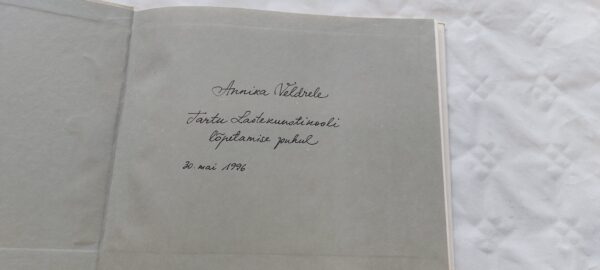 Annika Veldrele
Tartu Lastekunstikooli
lõpetamise puhul
30. mai 1996